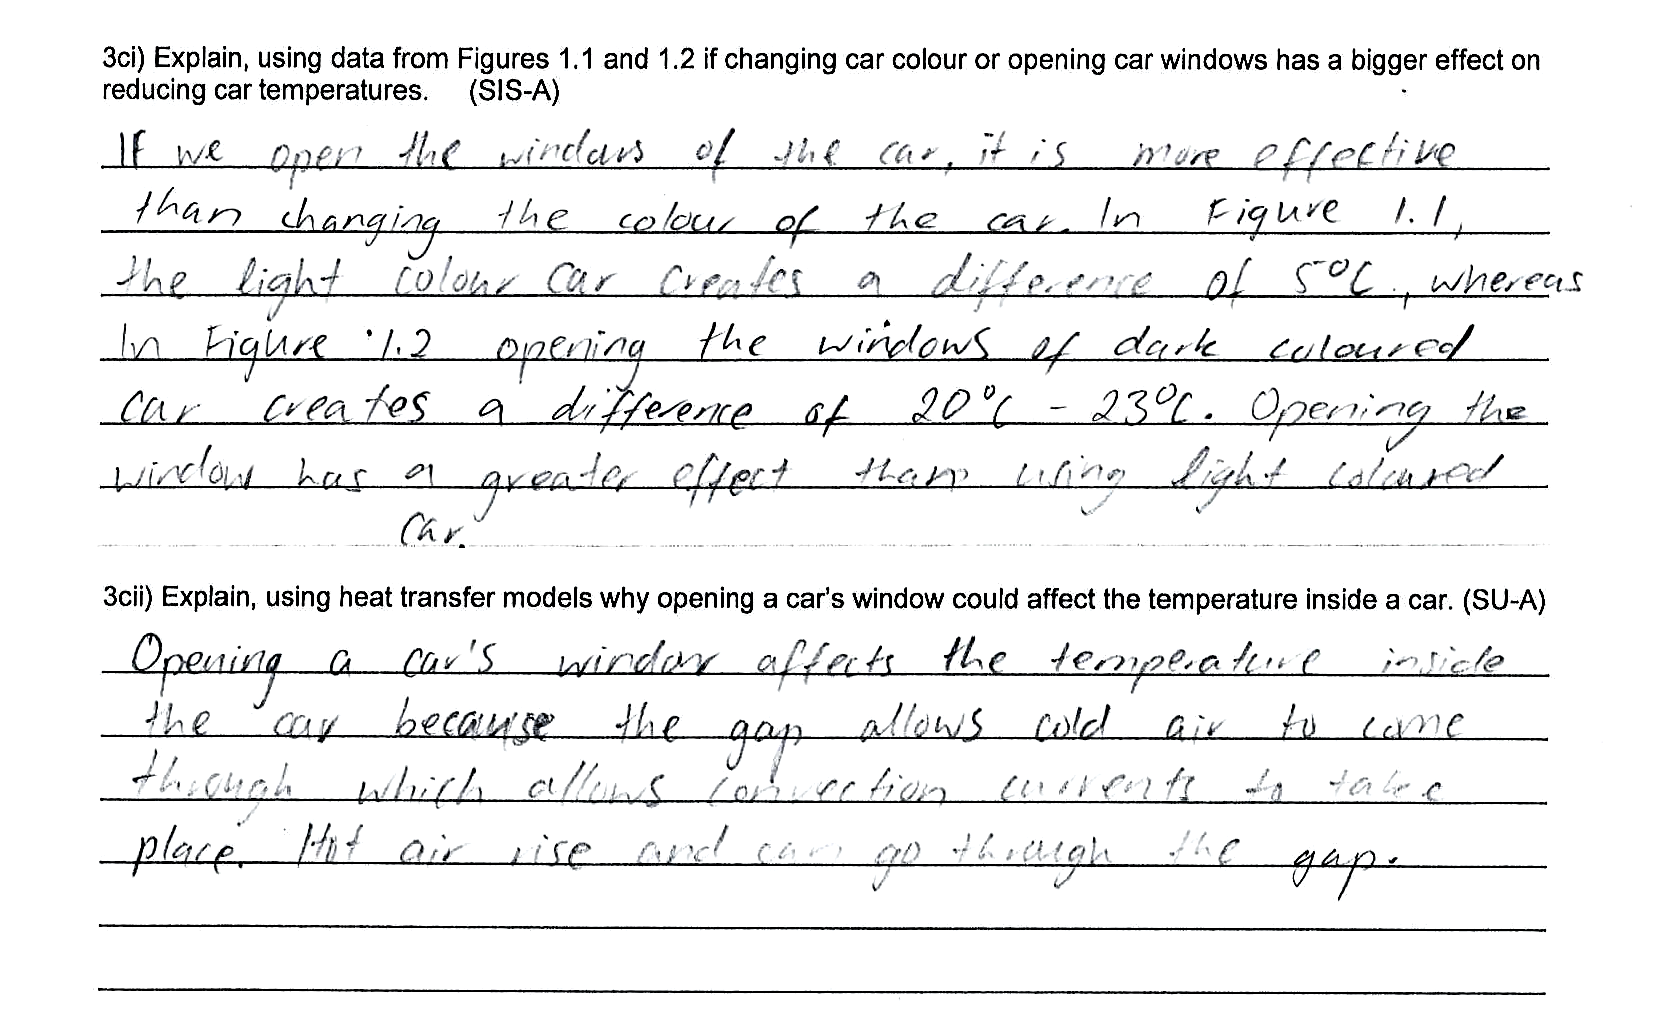 3ci) Explain, using data from Figures 1.1 and 1.2 if changing car colour or opening car windows has a bigger effect on
reducing car temperatures. (SIS-A)
If we open the windows of the car, it is more effective
than changing the colour of the car. In Figure 1.1,
the light colour car creates a difference of 5°C., whereas
In Figure 1.2 opening the windows of dark coloured
car creates a difference of 20°C - 23°C. Opening the
window has a greater effect than using light coloured
car.
3cii) Explain, using heat transfer models why opening a car's window could affect the temperature inside a car. (SU-A)
Opening a car's window affects the temperature inside
the car because the gap allows cold air to come
through which allows convection currents to take
place. Hot air rise and can go through the gap.